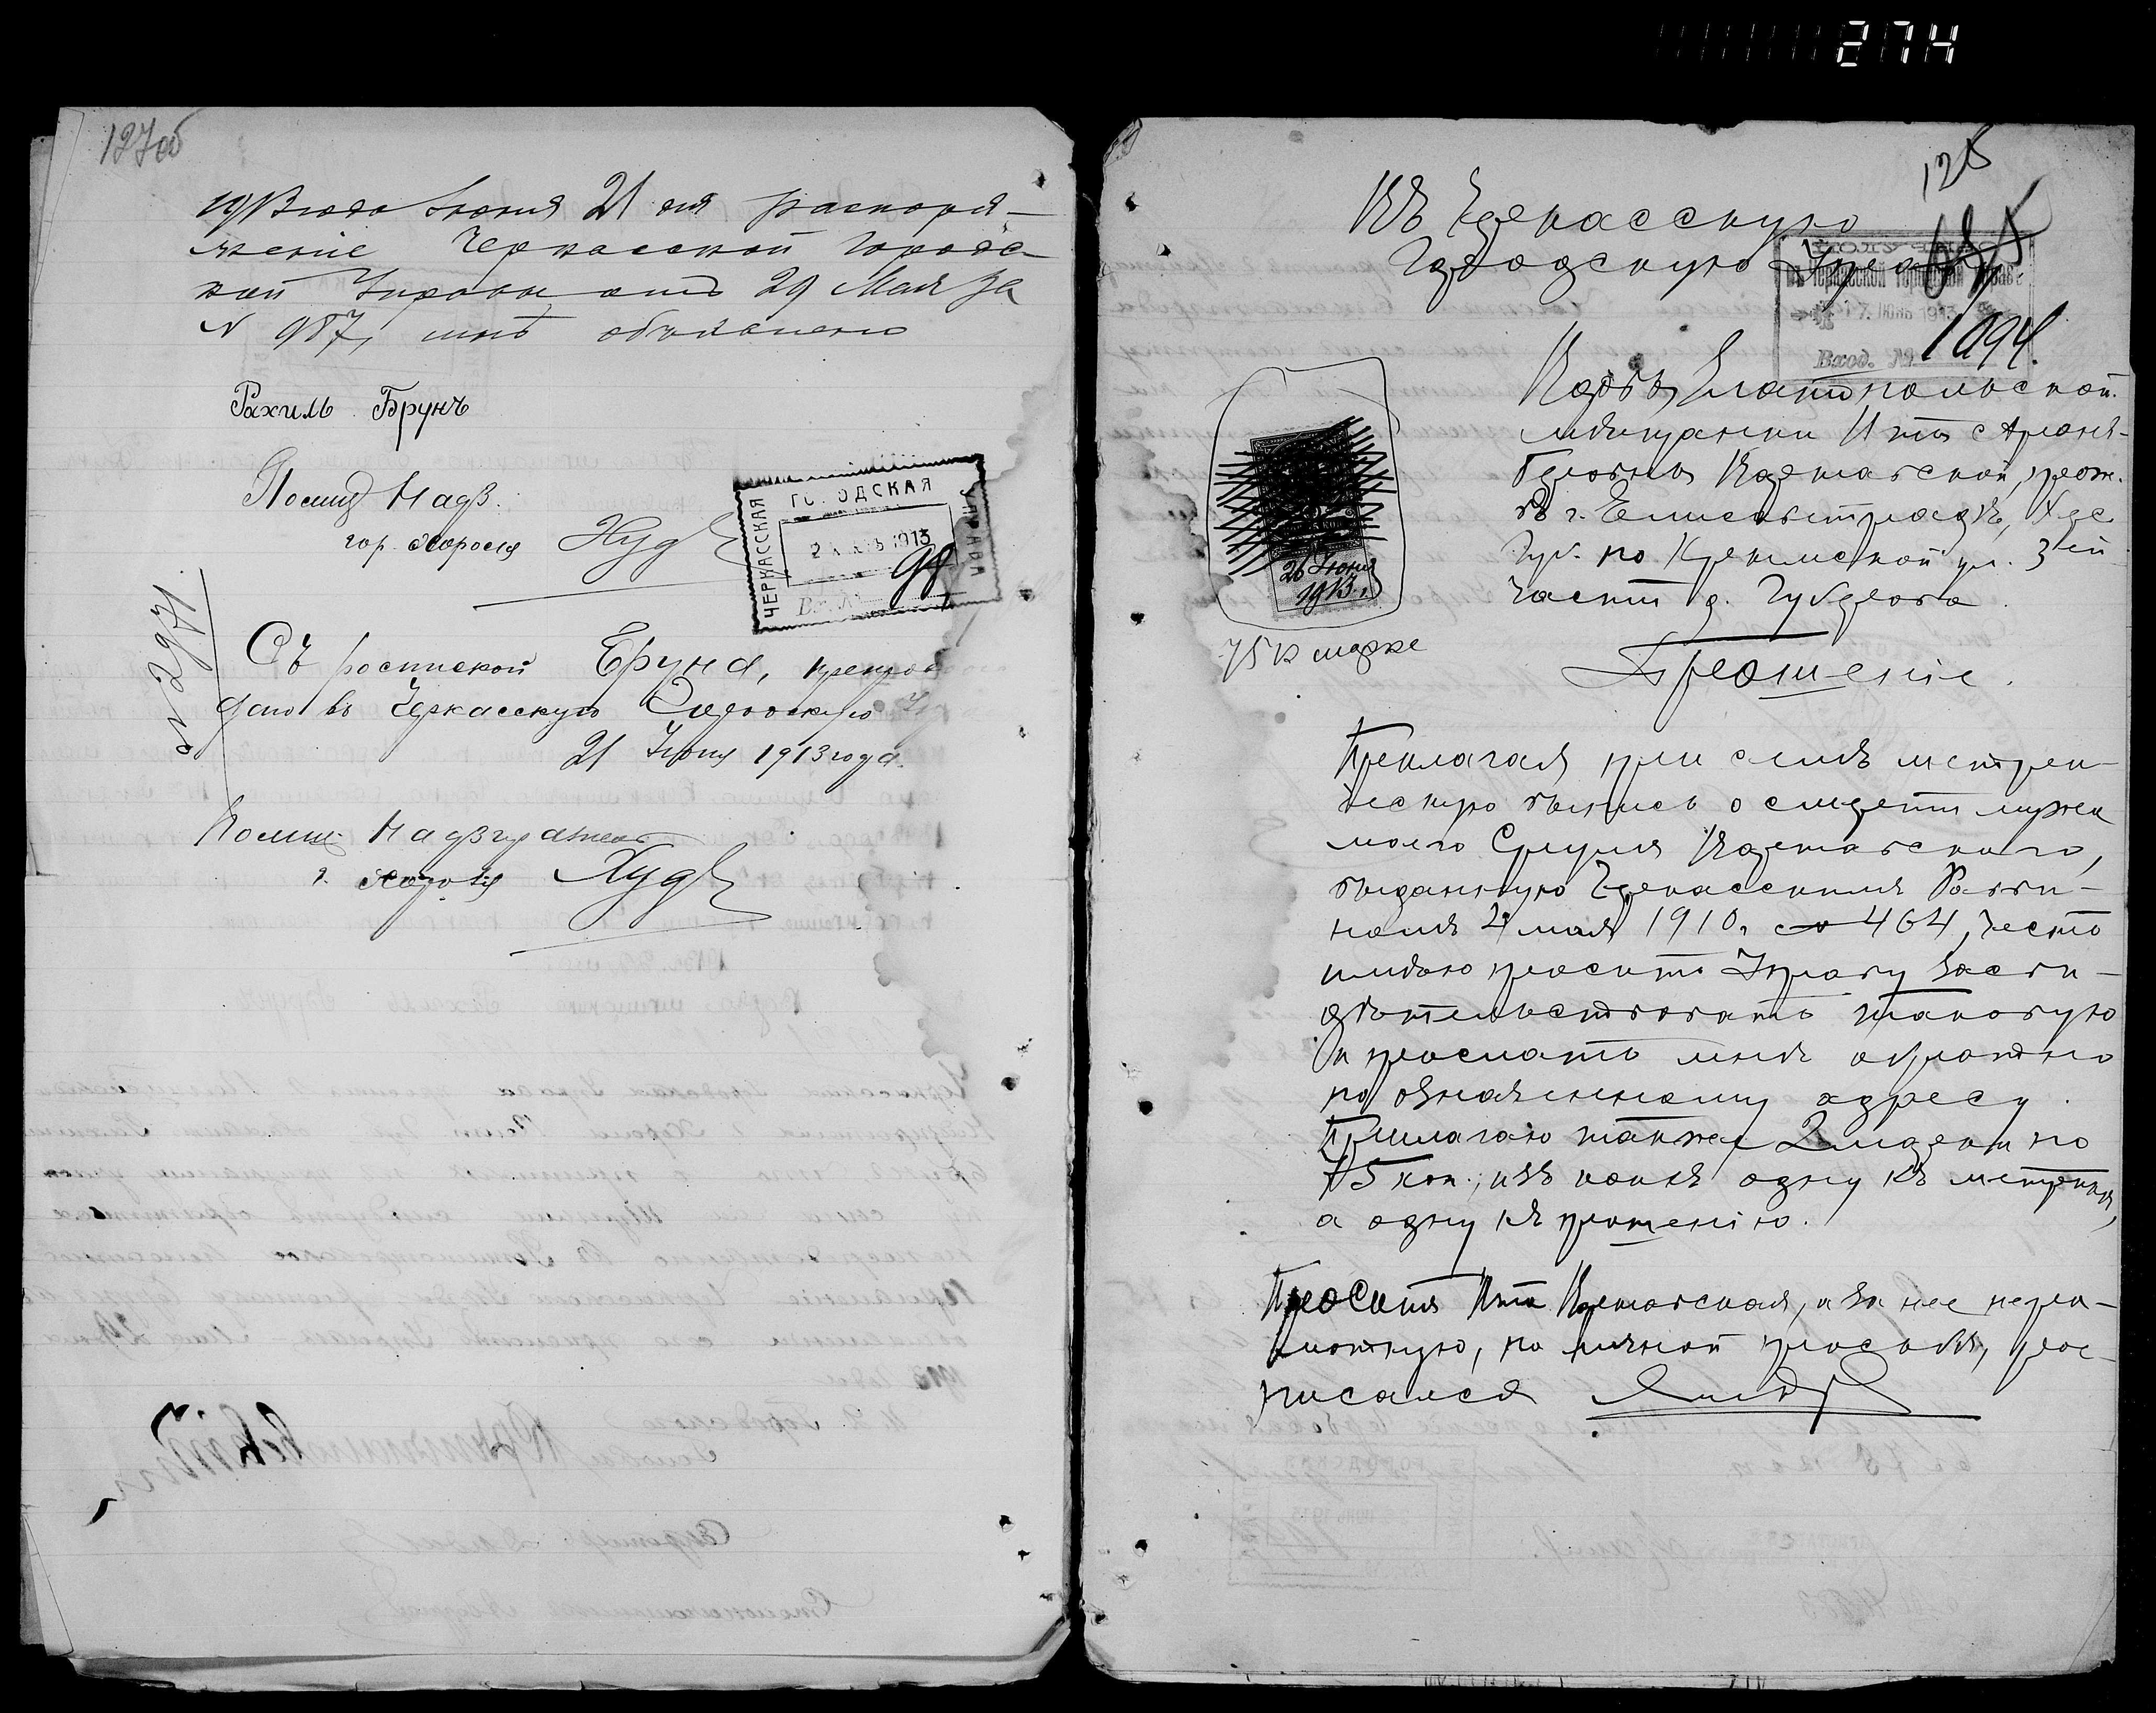 274
127об
1913 года Июня 21 дня распоря-
жение Черкасской Городс-
кой Управы отъ 29 Мая за
№ 987, мнѣ объявлено
Рахиль Брунъ
Помищ Надз.
гор. Хорола
ЧЕРКАССКАЯ ГОРОДСКАЯ УПРАВА
1913
№ 2971
Съ роспиской Бруна, препрово
дено въ Черкасскую Городскую
21 Июня 1913 года.
Помищ Надзирателя
г. Хорола
128
Въ Черкасскую
Городскую Управу
ПОЛУЧЕНО
въ Черкасской Городской Управѣ
27 ІЮНЬ 1913
Вход. № 1094.
Вдовы Златопольской
мѣщанки Ити Ароно-
Берковны Каневской, прож.
въ г. Елисаветградѣ, Хер.
Губ. по Крымской ул. 3ей
части д. Губерова.
26 Июня
1913.
75 к марке
Прошеніе.
Препалагая при семъ метри-
ческую выпись о смерти мужа
моего Сруля
выданную Черкасскимъ Равви-
номъ 4 мая 1910, № 464, честь
имѣю просить Управу засви-
дѣтельствовать таковую
и прослать мнѣ обратно
по означенному адресу.
Прилагаю также 2 марки по
75 коп., изъ коихъ одну къ метрикѣ,
а одну къ прошенію.
Проситъ Ити и за нее негра-
мотную, по личной просьбѣ, рос-
писался